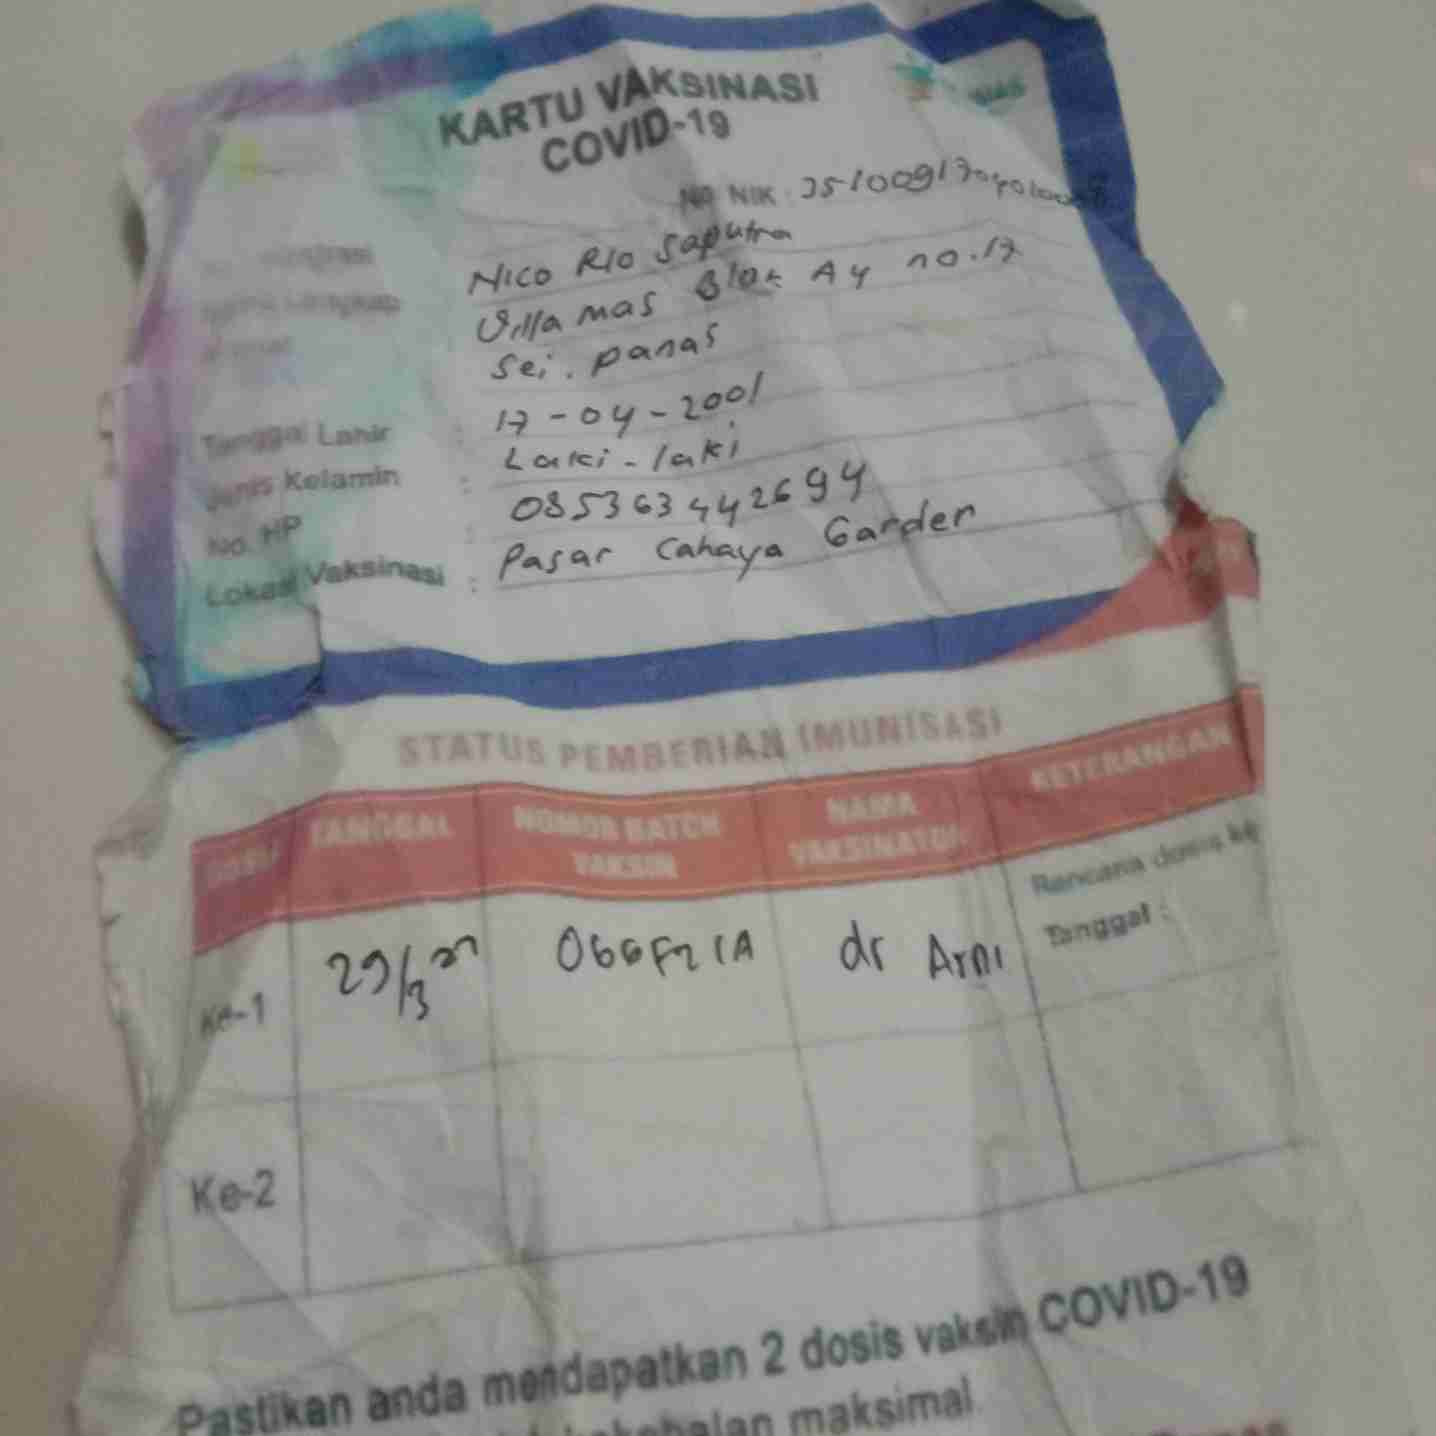 KARTU VAKSINASI
COVID-19
No NIK :
Nico Rio Saputra
Villa mas Blok A4 no.17
Sei. panas
Tanggal Lahir : 17-04-2001
Jenis Kelamin : Laki-laki
No. HP : 085363442694
Lokasi Vaksinasi : Pasar Cahaya Garden
STATUS PEMBERIAN IMUNISASI
TANGGAL NOMOR BATCH VAKSIN NAMA VAKSINATOR KETERANGAN
Ke-1 29/3 dr Arni Rencana dosis ke
Tanggal :
Ke-2
Pastikan anda mendapatkan 2 dosis vaksin COVID-19
maksimal